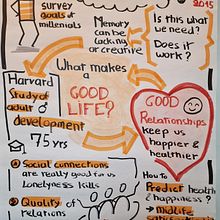 2015
survey
goals of
millenials
Memory
can be
lacking
or creative
Is this what
we need?
Does it
work?
What makes
a
GOOD
LIFE?
Harvard
Study of
adult
development
75 yrs
GOOD
Relationships
keep us
happier &
healthier
① Social connections
are really good for us
Lonelyness kills
② Quality of
relations
How To
Predict health
& happiness?
Midlife